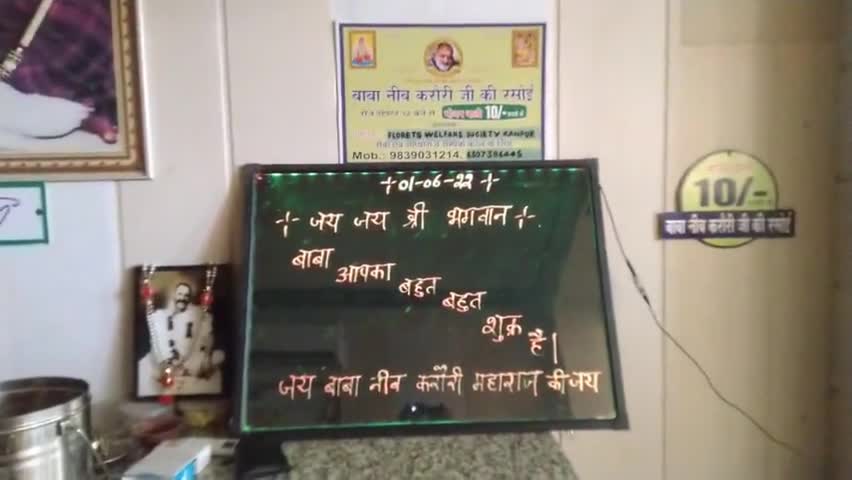 बाबा नीब करौरी जी की रसोई
10/-
FLORETS WELFARE SOCIETY KANPUR
Mob.: 9839031214,
01-06-22
जय जय श्री भगवान
बाबा आपका बहुत बहुत शुक्र है।
जय बाबा नीब करौरी महाराज की जय
10/-
बाबा नीब करौरी जी की रसोई